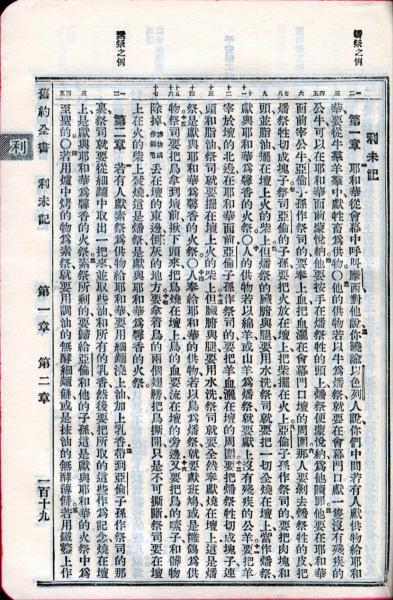 燔祭之例
利未記
第一章 耶和華從會幕中呼叫摩西對他說你曉諭以色列人說你們中間若有人獻供物給耶和
華要從牛羣羊羣中獻牲畜爲供物○他的供物若以牛爲燔祭就要在會幕門口獻一隻沒有殘疾的
公牛可以在耶和華面前蒙悅納他要按手在燔祭牲的頭上燔祭便蒙悅納爲他贖罪他要在耶和華
面前宰公牛亞倫子孫作祭司的要奉上血把血灑在會幕門口壇的周圍那人要剝去燔祭牲的皮把
燔祭牲切成塊子祭司亞倫的子孫要把火放在壇上把柴擺在火上亞倫子孫作祭司的要把肉塊和
頭並脂油擺在壇上火的柴上但燔祭的臟腑與腿要用水洗祭司就要把一切全燒在壇上當作燔祭
獻與耶和華爲馨香的火祭○人的供物若以綿羊或山羊爲燔祭就要獻上沒有殘疾的公羊要把羊
宰於壇的北邊在耶和華面前亞倫子孫作祭司的要把羊血灑在壇的周圍要把燔祭牲切成塊子連
頭和脂油祭司就要擺在壇上火的柴上但臟腑與腿要用水洗祭司就要全然奉獻燒在壇上這是燔
祭是獻與耶和華爲馨香的火祭○人奉給耶和華的供物若以鳥爲燔祭就要獻班鳩或是雛鴿爲供
物祭司要把鳥拿到壇前揪下頭來把鳥燒在壇上鳥的血要流在壇的旁邊又要把鳥的嗉子和髒物
除掉丟在壇的東邊倒灰的地方要拿着鳥的兩個翅膀把鳥撕開只是不可撕斷祭司要在壇
上在火的柴上焚燒這是燔祭是獻與耶和華爲馨香的火祭
素祭之例
第二章 若有人獻素祭爲供物給耶和華要用細麵澆上油加上乳香帶到亞倫子孫作祭司的那
裏祭司就要從細麵中取出一把來並取些油和所有的乳香然後要把所取的這些作爲記念燒在壇
上是獻與耶和華爲馨香的火祭素祭所剩的要歸給亞倫和他的子孫這是獻與耶和華的火祭中爲
至聖的○若用爐中烤的物爲素祭就要用調油的無酵細麵餅或是抹油的無酵薄餅若用鐵鏊上作
舊約全書 利未記 第一章 第二章 一百十九
利